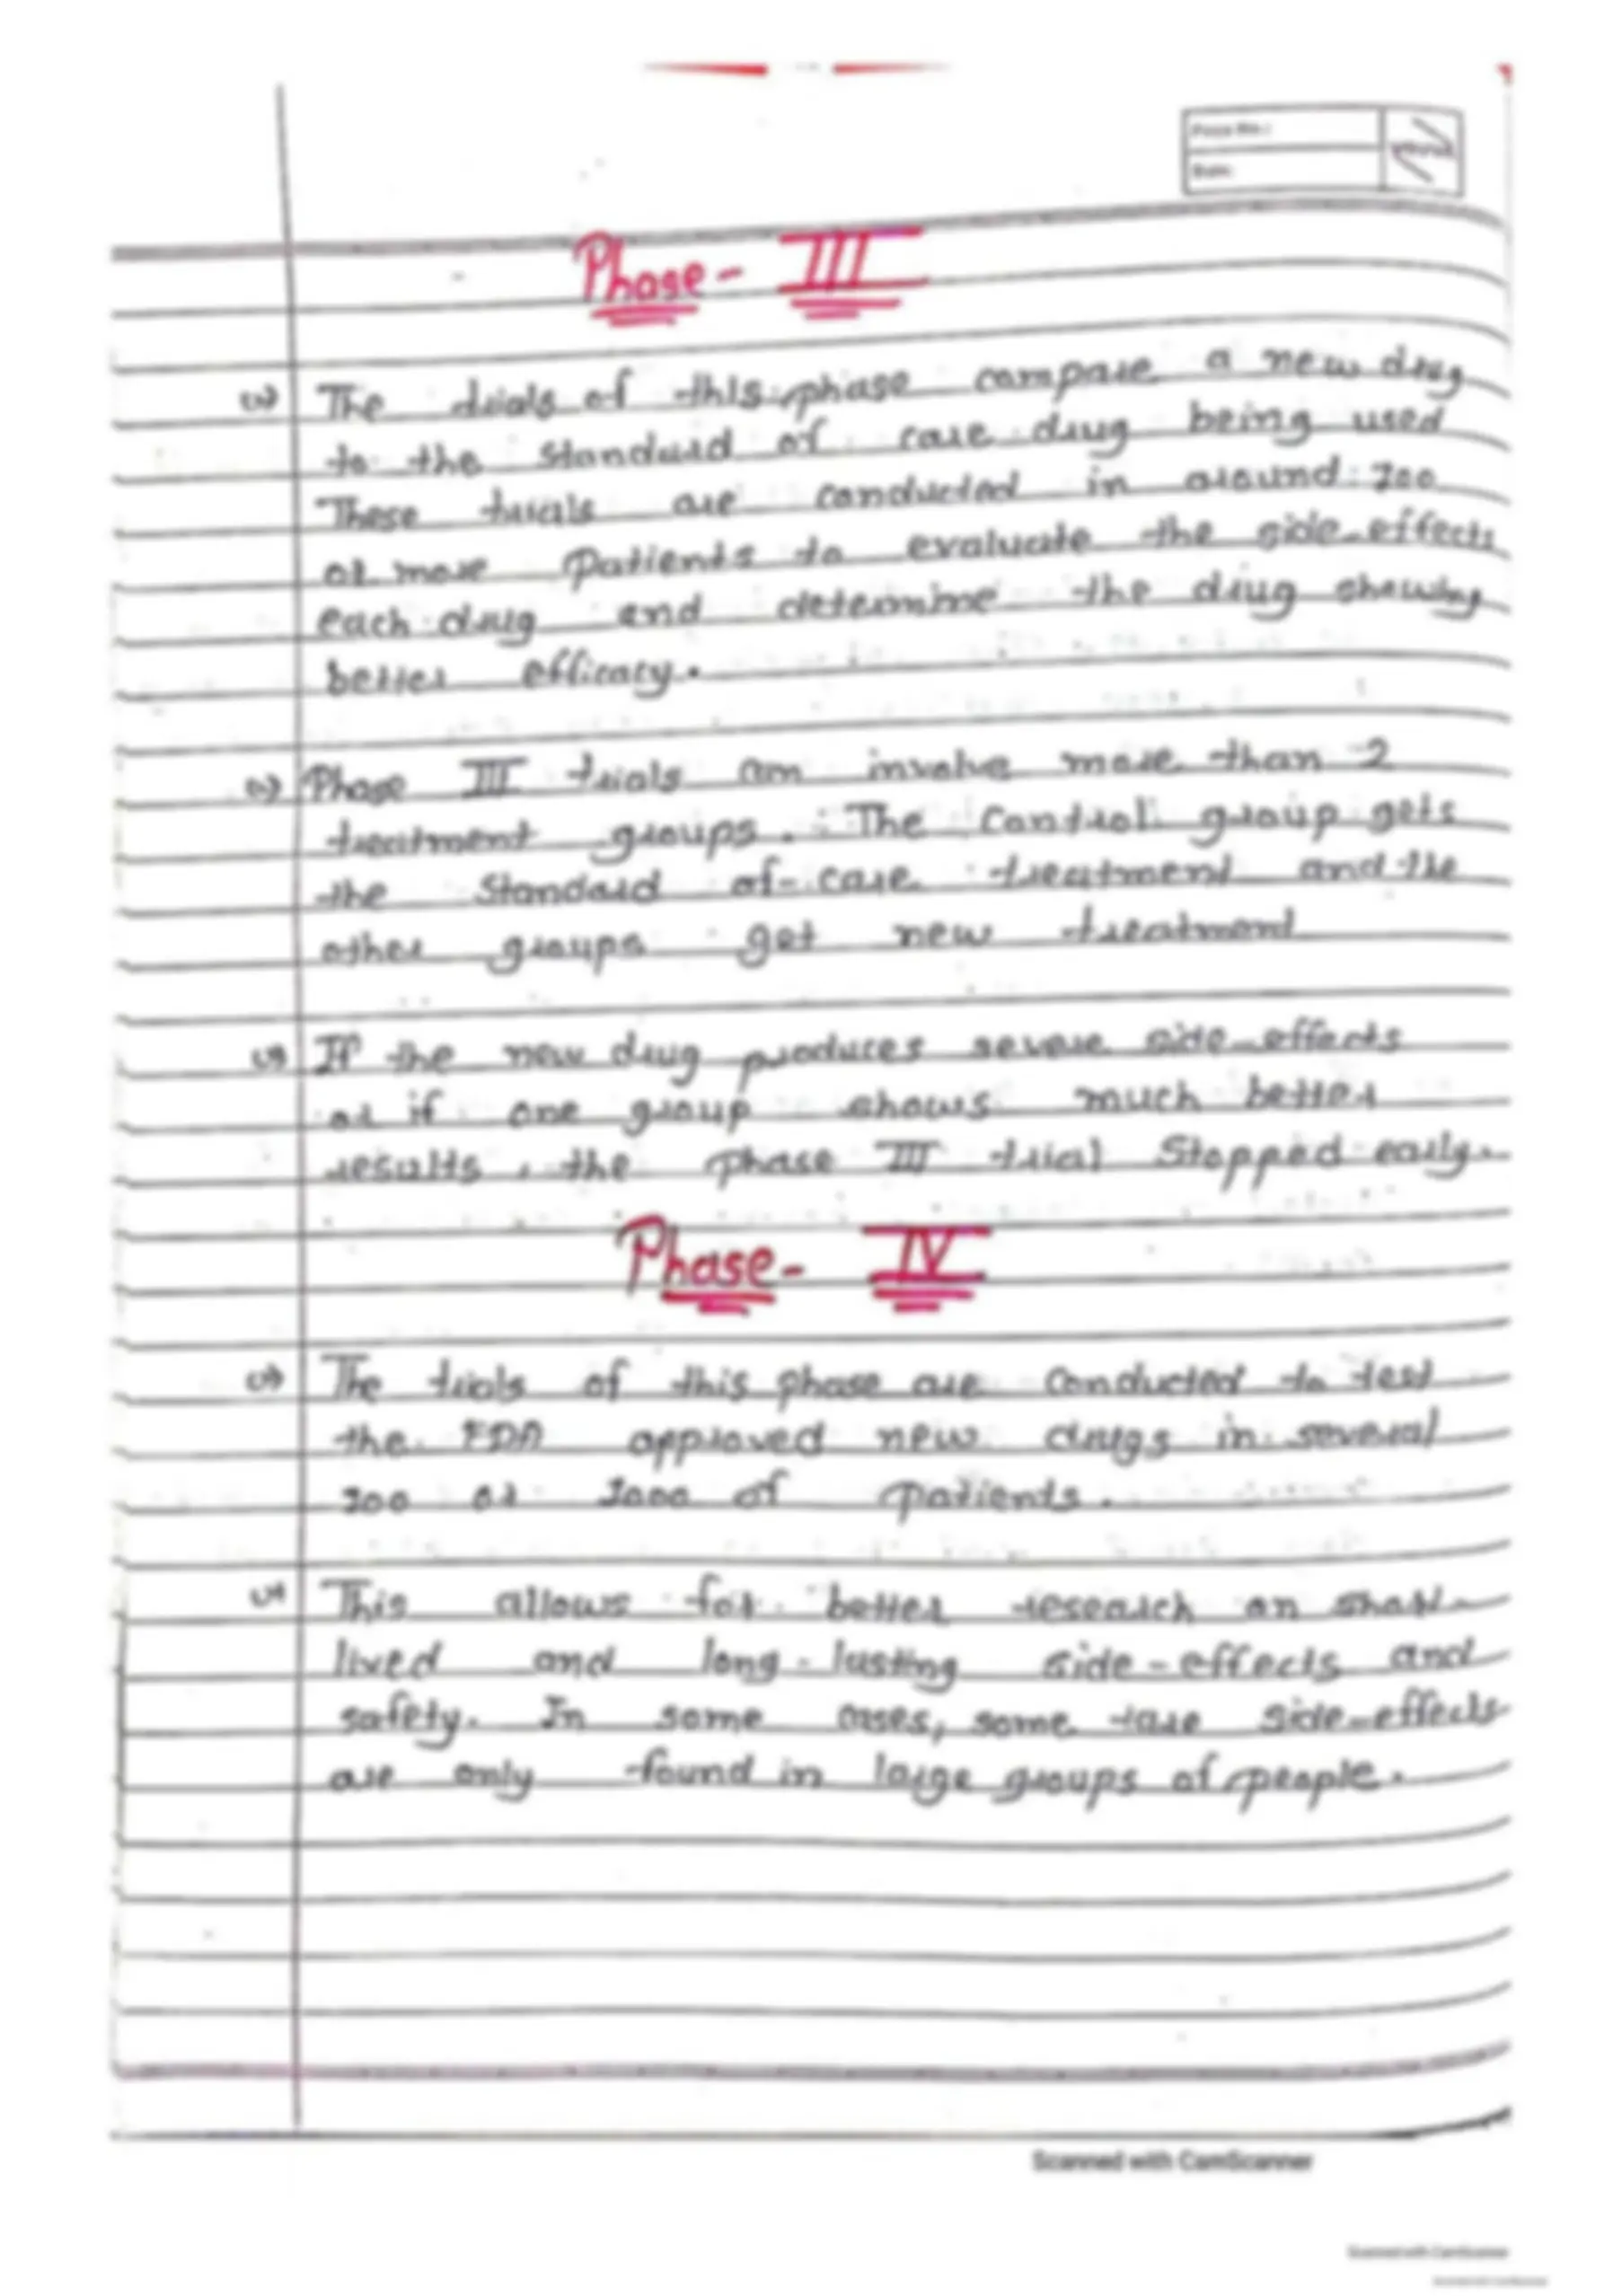 Page No.:
Date:
Phase - III
The trials of this phase compare a new drug
to the standard of care drug being used
These trials are conducted in around 100
or more patients to evaluate the side-effects
each drug and determine the drug showing
better efficacy.
Phase III trials can involve more than 2
treatment groups. The Control group gets
the standard of-care treatment and the
other groups get new treatment
If the new drug produces severe side-effects
or if one group shows much better
results, the phase III trial Stopped early.
Phase - IV
The trials of this phase are conducted to test
the FDA approved new drugs in several
100 or 1000 of patients.
This allows for better research on short-
lived and long-lasting side-effects and
safety. In some cases, some rare side-effects
are only found in large groups of people.
Scanned with CamScanner
Scanned with CamScanner
Scanned with CamScanner